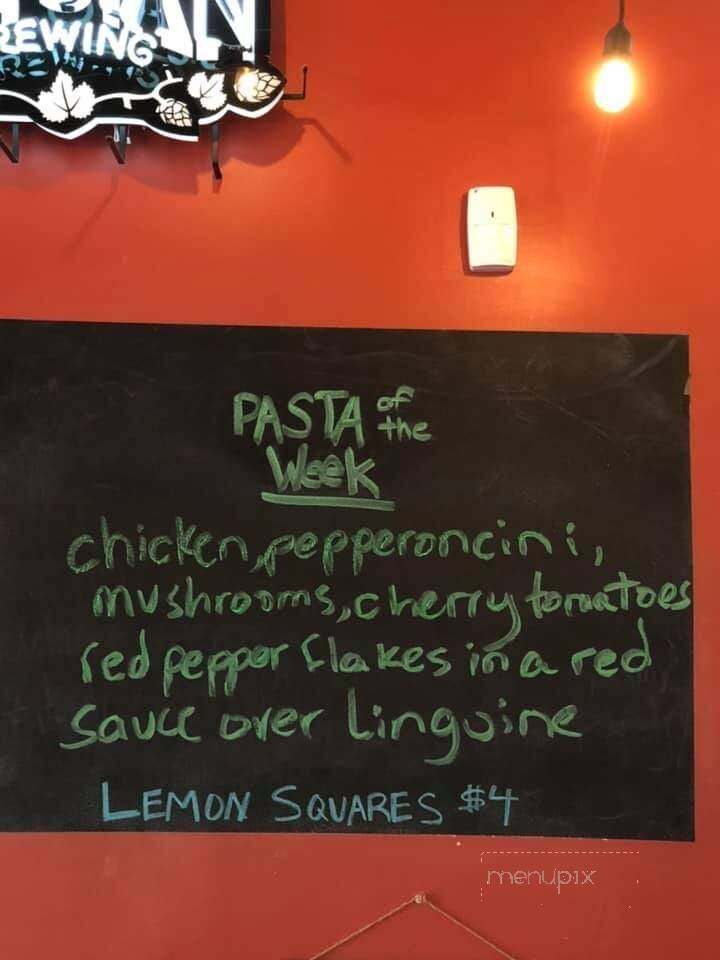 EWING
PASTA of the
Week
chicken, pepperoncini,
mushrooms, cherry tomatoes
red pepper flakes in a red
sauce over linguine
LEMON SQUARES $4
menupix